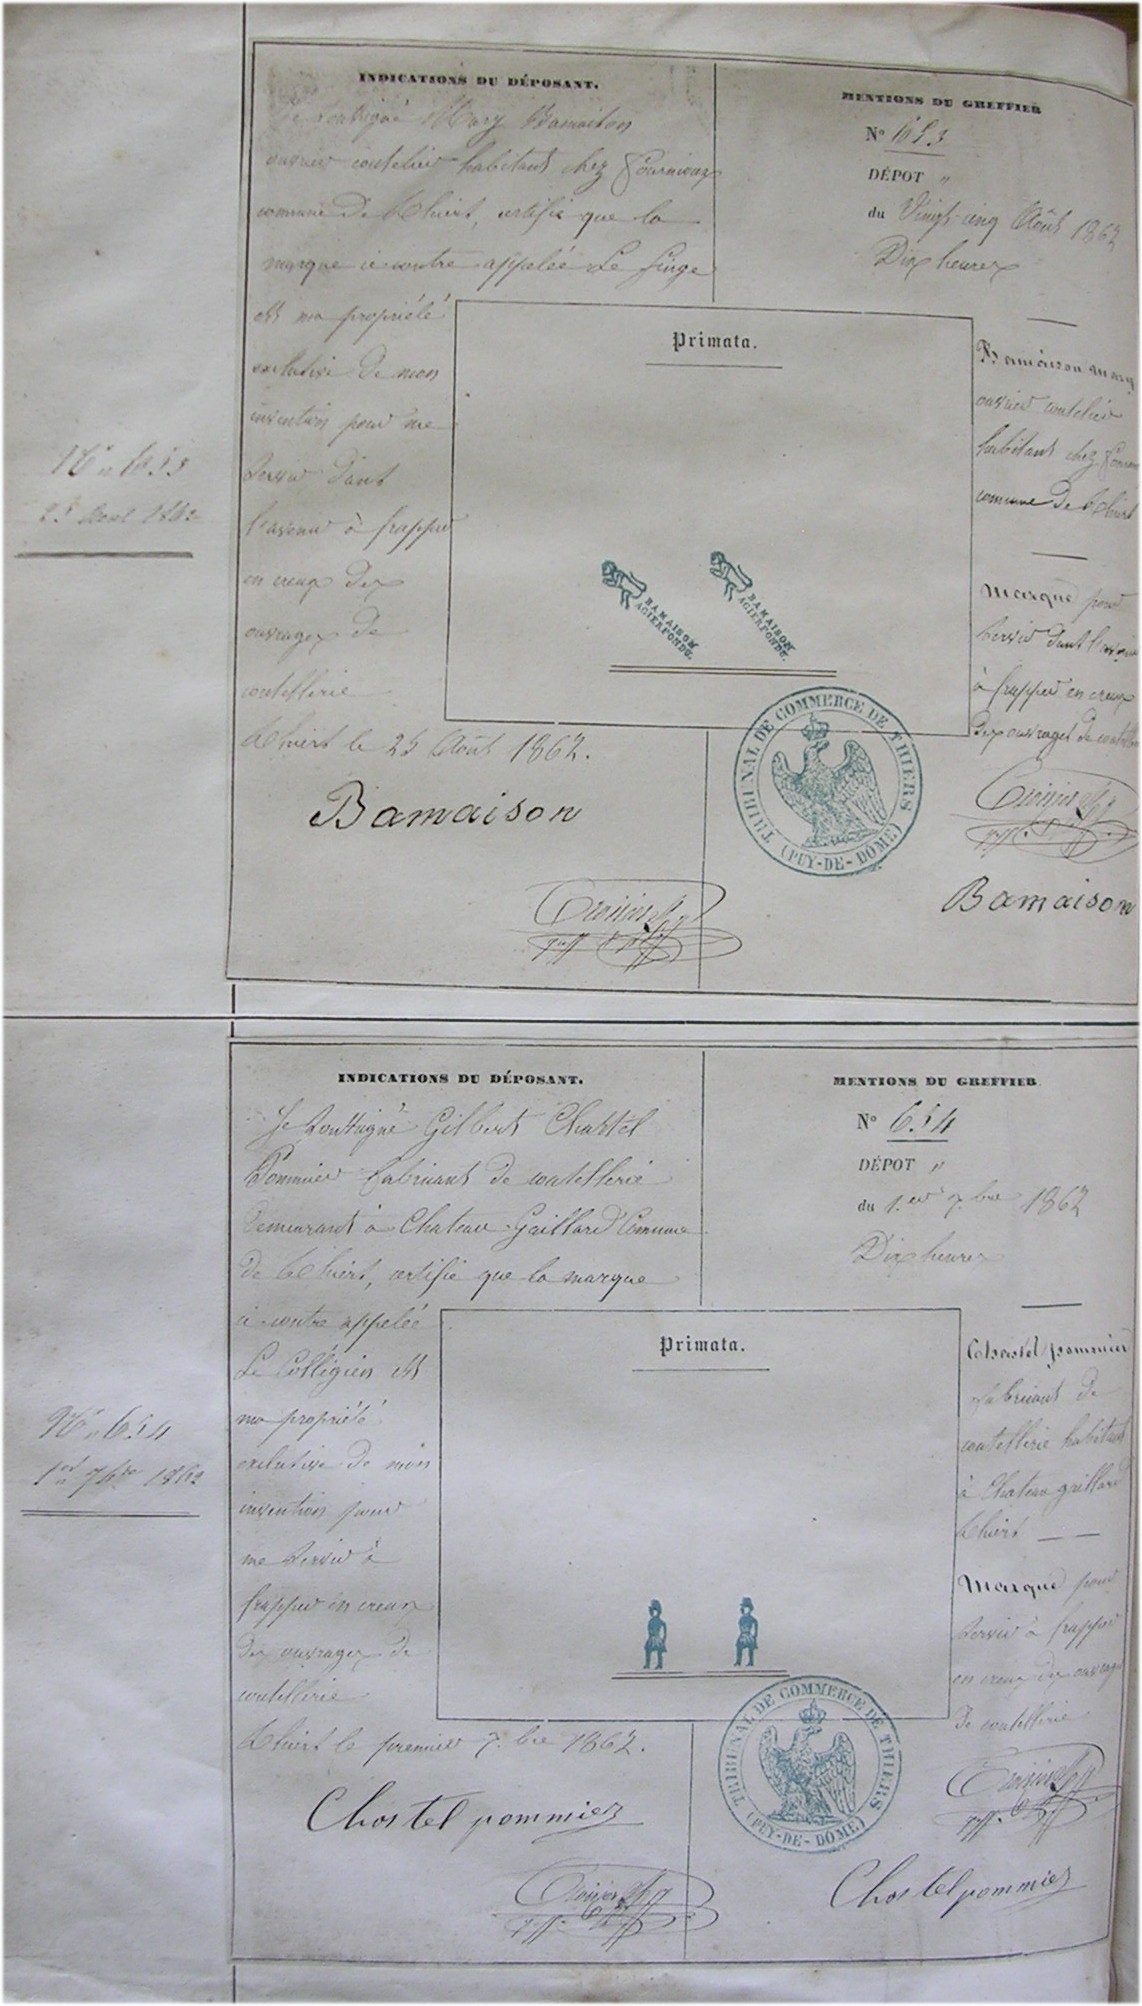 INDICATIONS DU DÉPOSANT.
Je soussigné Mary Bamaison
ouvrier coutelier habitant chez Fournioux
commune de Thiers, certifie que la
marque ci contre appelée Le Singe
est ma propriété
exclusive de mon
invention pour me
servir dans
l'avenir à frapper
en creux des
ouvrages de
coutellerie
Thiers le 25 Août 1862.
Bamaison
MENTIONS DU GREFFIER
N° 653
DÉPOT "
du Vingt-cinq Août 1862
Dix heures
Bamaison Mary
ouvrier coutelier
habitant chez
commune de Thiers
Marque pour
servir dans l'avenir
à frapper en creux
des ouvrages de
Bamaison
Primata.
BAMAISON
AGIERFONDU.
BAMAISON
AGIERFONDU.
TRIBUNAL DE COMMERCE DE THIERS
(PUY-DE-DÔME)
N° 653
25 Août 1862
INDICATIONS DU DÉPOSANT.
Je soussigné Gilbert Chastel
Pommier fabricant de coutellerie
demeurant à Chateau Gaillard Comune
de Thiers, certifie que la marque
ci contre appelée
Le Collégien est
ma propriété
exclusive de mon
invention pour
me servir à
frapper en creux
des ouvrages de
coutellerie
Thiers le premier 7.bre 1862.
Chastel pommier
MENTIONS DU GREFFIER
N° 654
DÉPOT "
du 1.er 7.bre 1862
Dix heures
Chastel pommier
fabricant de
coutellerie habitant
à Chateau gaillard
Thiers
Marque pour
servir à frapper
en creux des ouvrages
de coutellerie
Chastel pommier
Primata.
TRIBUNAL DE COMMERCE DE THIERS
(PUY-DE-DÔME)
N° 654
1er 7bre 1862